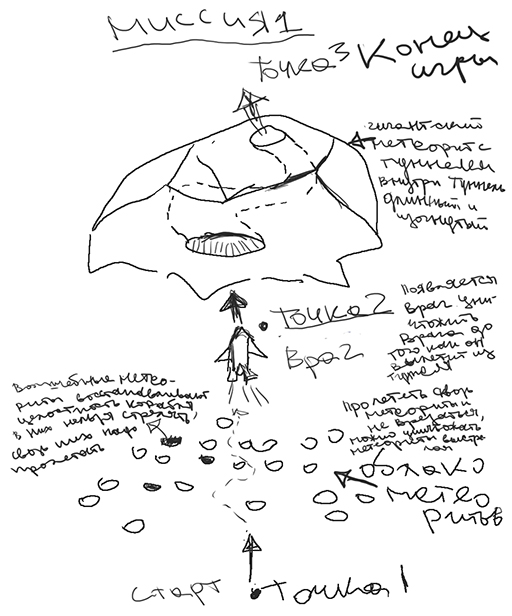 Миссия 1
точка 3 Конец
игры
гигантский
метеорит с
туннелем
внутри туннель
длинный и
изогнутый
Точка 2
Враг
Появляется
враг уни-
чтожить
врага до
того как он
вылетит из
тунеля
Волшебные метео-
риты восстанавливают
целостность корабля
в них нельзя стрелять,
сквозь них надо
пролетать
Пролететь сквозь
метеориты и
не врезаться,
можно уничтожать
метеориты выстре
лая
облако
метео
ритов
старт точка 1